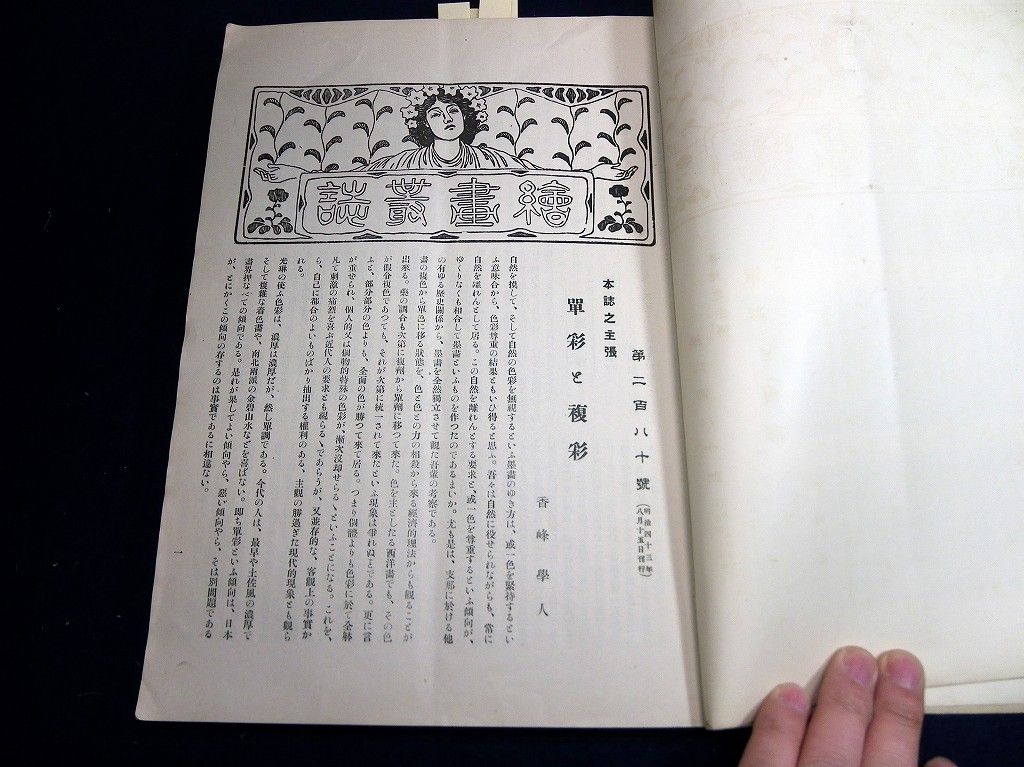 繪畫叢誌
第二百八十號
(明治四十三年
八月十五日刊行)
本誌之主張
單彩と複彩
香峰學人
自然を摸して、そして自然の色彩を無視するといふ墨畫のゆき方は、或一色を緊持するとい
ふ意味合から、色彩尊重の結果ともいひ得ると思ふ。吾々は自然に役せられながらも、常に
自然を離れんとして居る。この自然を離れんとする要求と、或一色を尊重するといふ傾向が、
ゆくりなくも相合して墨畫といふものを作つたのであるまいか。尤も是は、支那に於ける他
の有ゆる歷史關係から、墨畫を全然獨立させて觀た吾輩の考察である。
畫の複色から單色に移る狀態を、色と色との力の相殺から來る經濟的理法からも觀ることが
出來る。藥の調合も次第に複劑から單劑に移つて來た。色を主としたる西洋畫でも、その色
が假令複色であつても、それが次第に統一されて來たといふ現象は爭れぬことである。更に言
ふと、部分部分の色よりも、全面の色が勝つて來て居る。つまり個體よりも色彩に於て全躰
が重せられ、個人的又は個物的特殊の色彩が、漸次沒却せらるゝといふことになる。これを、
凡て刺激の痛烈を喜ぶ近代人の要求とも視らるゝであらうが、又並存的な、客觀上の事實か
ら、自己に都合のよいものばかり抽出する權利のある、主觀の勝過ぎた現代的現象とも觀ら
れる。
光琳の使ふ色彩は、濃厚は濃厚だが、然し單調である。今代の人は、最早や土佐風の濃厚で
そして複雜な着色畫や、南北兩派の金碧山水などを喜ばない。即ち單彩といふ傾向は、日本
畫界押なべての傾向である。是れが果してよい傾向やら、惡い傾向やら、そは別問題である
が、とにかくこの傾向の存するのは事實であるに相違ない。
一